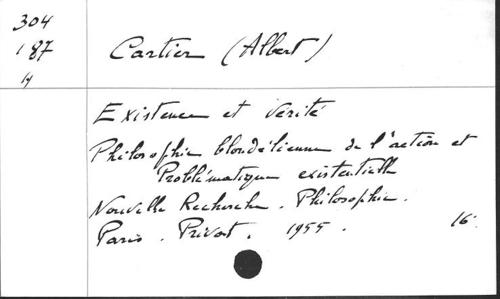 304
187
H
Cartier (Albert)
Existence et Vérité
Philosophie blondélienne de l'action et
Problématique existentielle
Nouvelle Recherche. Philosophie.
Paris. Privat. 1955. 16